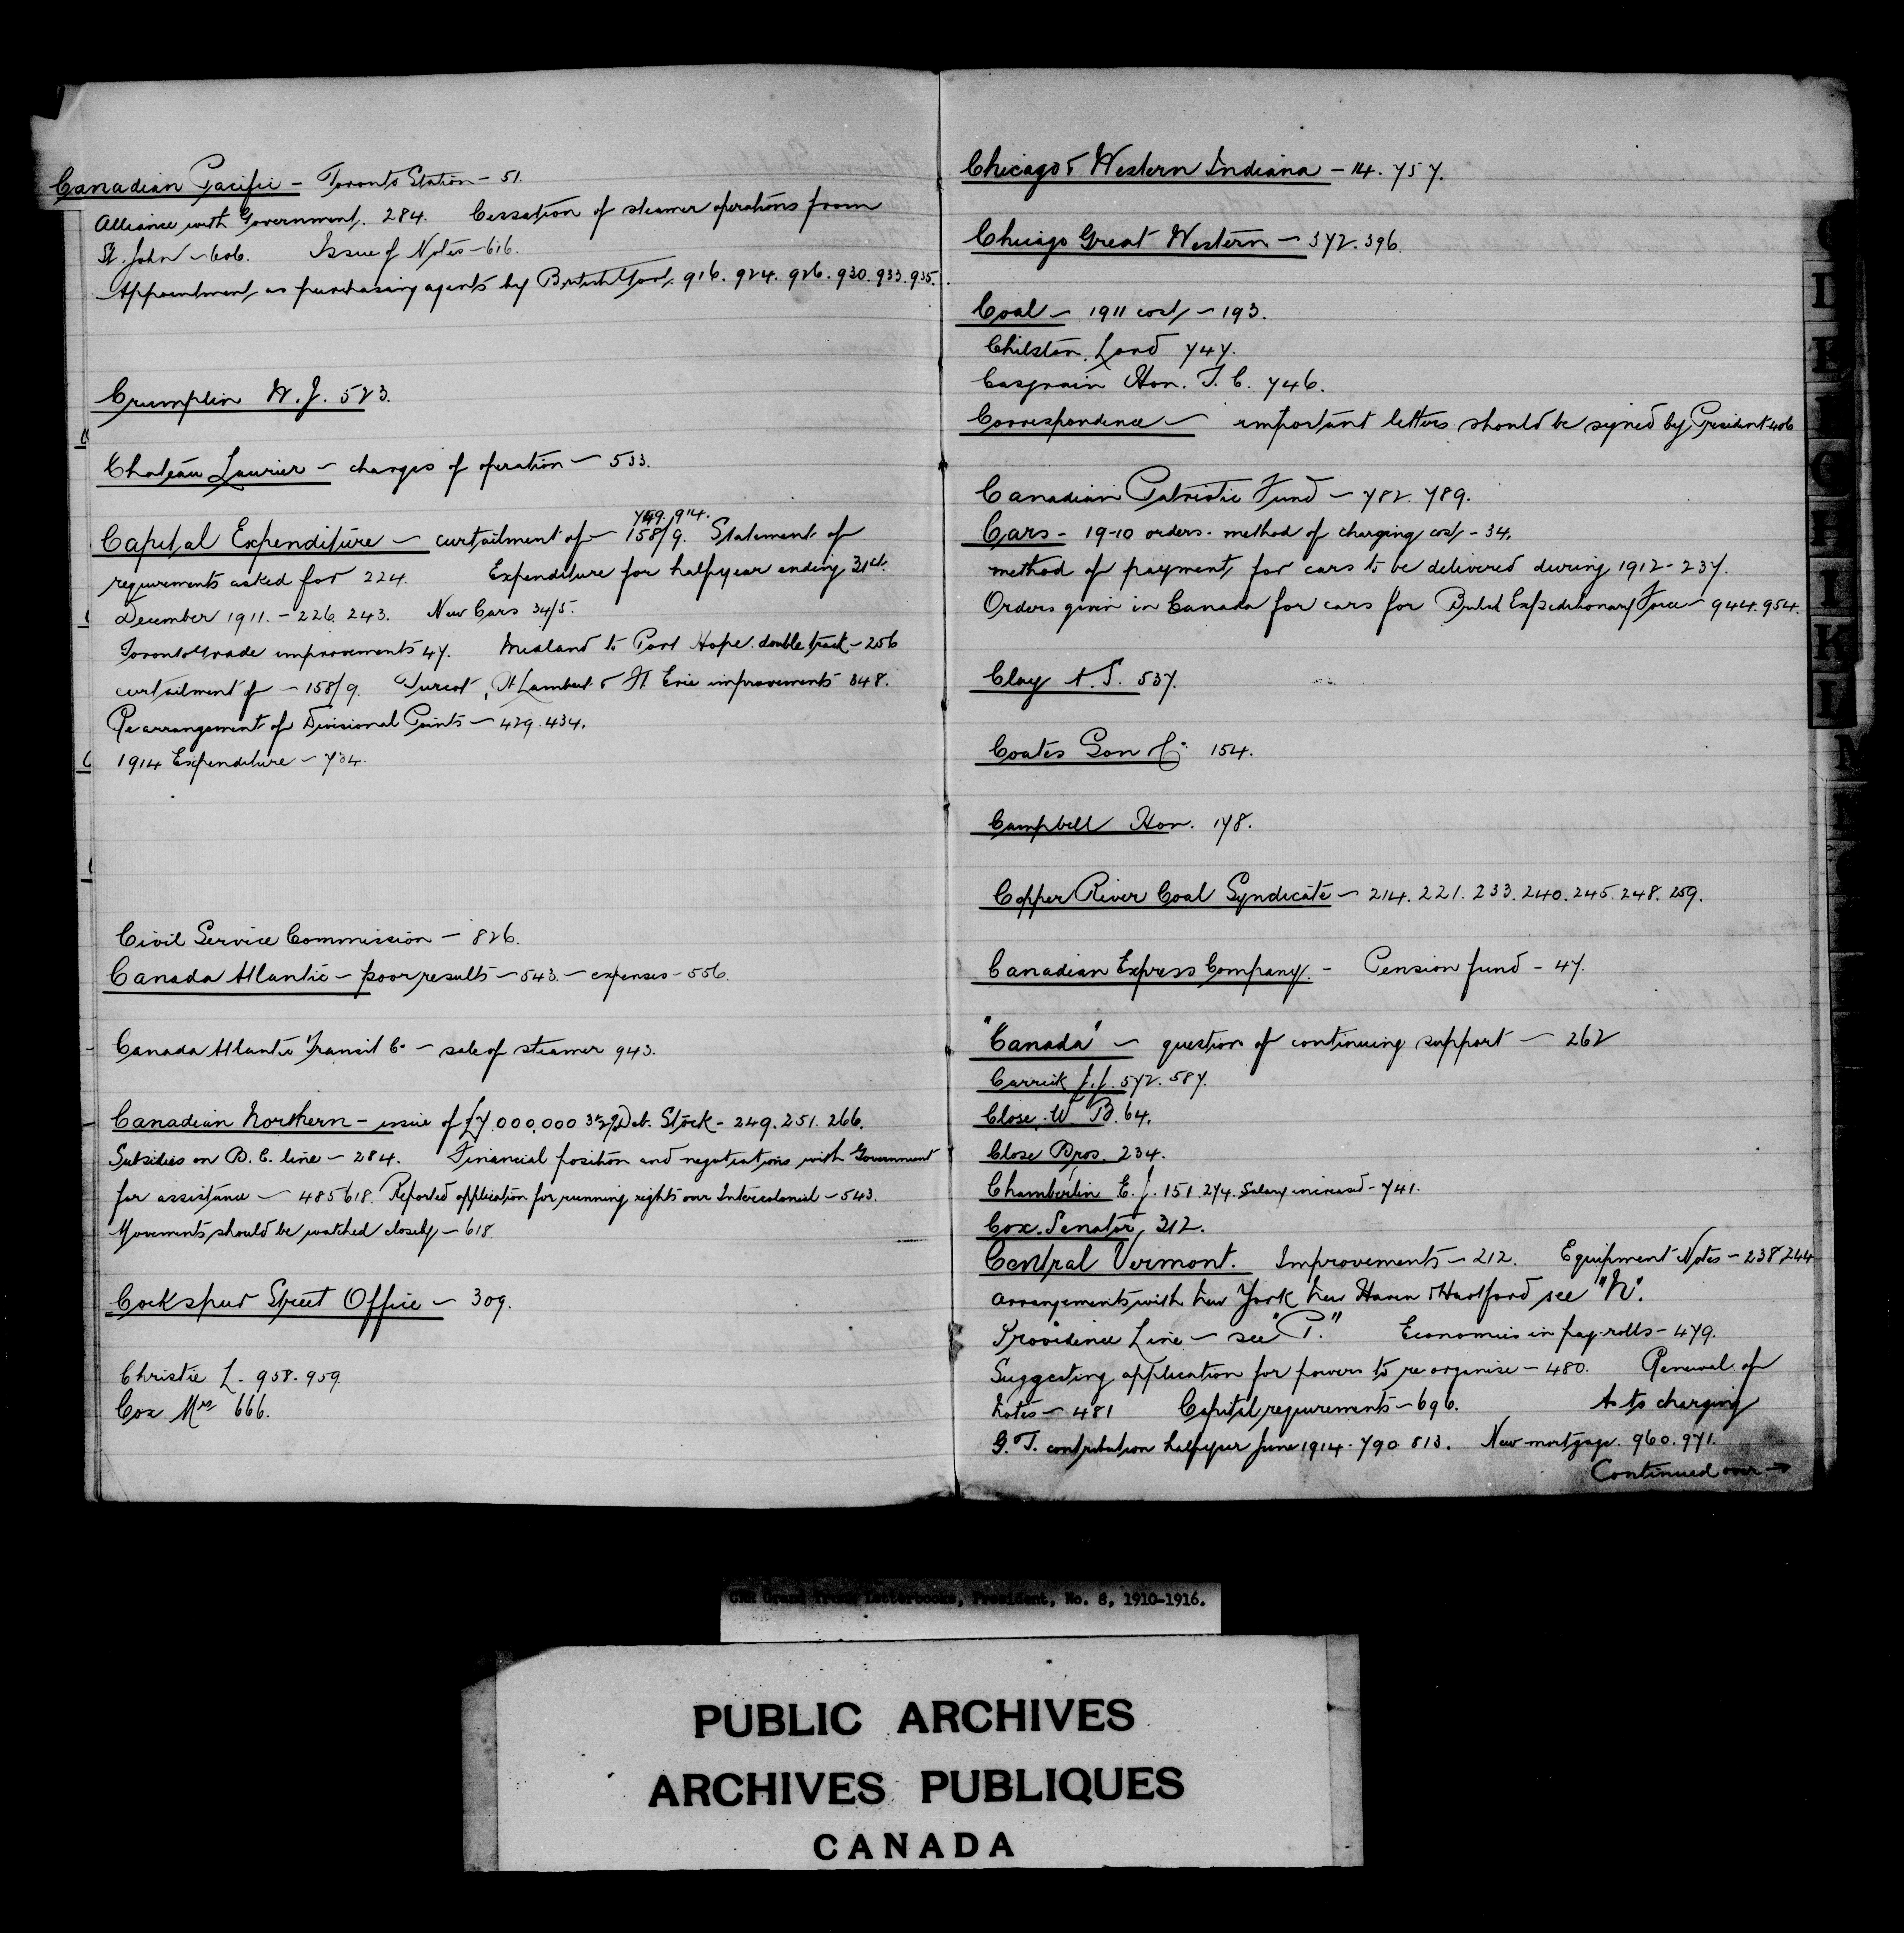 Canadian Pacific - Toronto Station - 51.
Alliance with Government. 284. Cessation of steamer operations from
St. John - 606. Issue of Notes - 616.
Appointment as purchasing agents by British Govt. 916. 924. 926. 930. 933. 935.
Crumplin W. J. 523.
Chateau Laurier - charges of operation - 533.
749. 914.
Capital Expenditure - curtailment of - 158/9. Statement of
requirements asked for 224. Expenditure for halfyear ending 31st.
December 1911. - 226. 243. New Cars 34/5.
Toronto Grade improvements 47. Midland to Port Hope double track - 256
curtailment of - 158/9. Turcot, St Lambert & Ft. Erie improvements 348.
Rearrangement of Divisional Points - 429. 434.
1914 Expenditure - 734.
Civil Service Commission - 826.
Canada Atlantic - poor results - 543. - expenses - 556.
Canada Atlantic Transit Co - sale of steamer 943.
Canadian Northern - issue of £7.000,000 3½% Deb. Stock - 249. 251. 266.
Subsidies on B. C. line - 284. Financial position and negotiations with Government
for assistance - 485 618. Reported application for running rights over Intercolonial - 543.
Movements should be watched closely - 618.
Cockspur Street Office - 309.
Christie L. 958. 959.
Cox Mrs 666.
Chicago & Western Indiana - 14. 757.
Chicago Great Western - 372. 396.
Coal - 1911 cost - 193.
Chilston, Lord 747.
Casgrain Hon. T. C. 746.
Correspondence - important letters should be signed by President 406
Canadian Patriotic Fund - 782. 789.
Cars - 19-10 orders. method of charging cost - 34.
method of payment for cars to be delivered during 1912 - 237.
Orders given in Canada for cars for British Expeditionary Force - 944. 954.
Clay A. S. 537.
Coates Son & Co. 154.
Campbell Hon. 178.
Copper River Coal Syndicate - 214. 221. 233. 240. 245. 248. 259.
Canadian Express Company. - Pension fund - 47.
"Canada" - question of continuing support - 262
Carrick J. J. 572. 587.
Close. W. B. 64.
Close Bros. 234.
Chamberlin E. J. 151. 274. Salary increased - 741.
Cox. Senator, 312.
Central Vermont. Improvements - 212. Equipment Notes - 238 244
arrangements with New York New Haven & Hartford see "N".
Providence Line - see "P." Economies in pay-rolls - 479.
Suggesting application for powers to re organise - 480. Renewal of
Notes - 481 Capital requirements - 696. As to charging
G. T. contribution halfyear June 1914. 790. 813. New mortgage. 960. 971.
Continued over →
CNR Grand Trunk Letterbooks, President, No. 8, 1910-1916.
PUBLIC ARCHIVES
ARCHIVES PUBLIQUES
CANADA